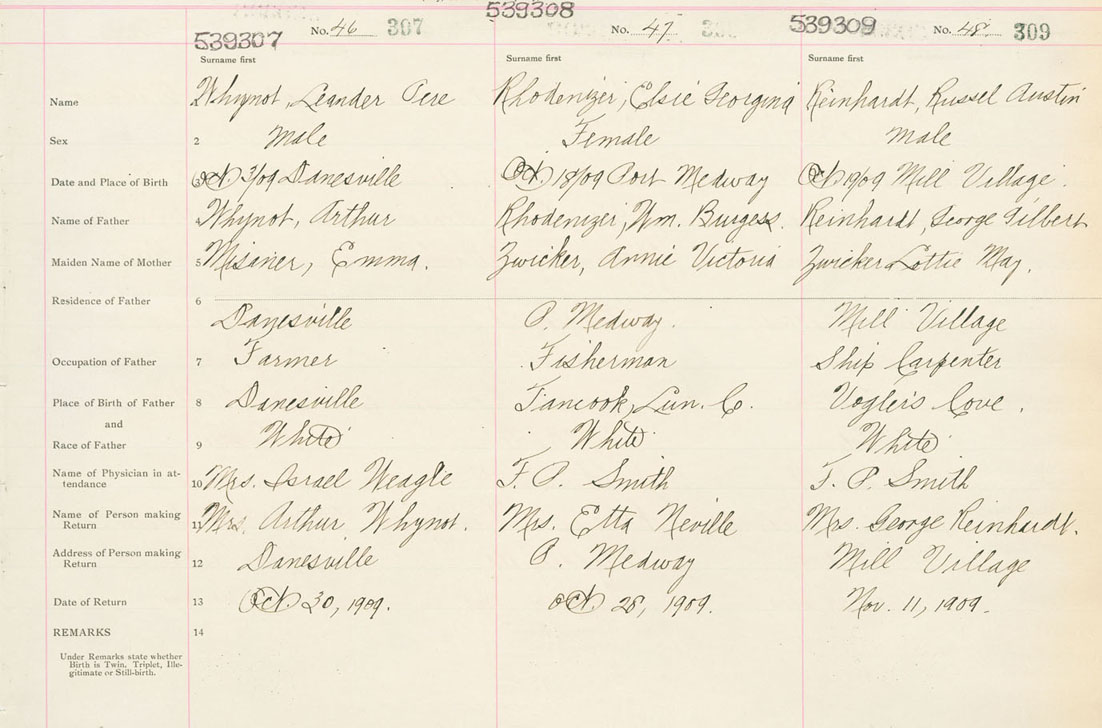 539307 No. 46 307 539308 No. 47 539309 No. 48. 309
Surname first Surname first Surname first
Name Whynot, Leander Rhodenizer, Elsie Georgina Reinhardt, Russel Austin
Sex 2 Male Female Male
Date and Place of Birth 3 Oct 3/09 Danesville Oct. 18/09 Port Medway Oct 19/09 Mill Village.
Name of Father 4 Whynot, Arthur Rhodenizer, Wm. Burgess. Reinhardt, George Gilbert
Maiden Name of Mother 5 Misaner, Emma. Zwicker, Annie Victoria Zwicker Lottie May.
Residence of Father 6
Danesville P. Medway. Mill Village
Occupation of Father 7 Farmer Fisherman Ship Carpenter
Place of Birth of Father 8 Danesville Tancook, Lun. C. Vogler's Cove.
and
Race of Father 9 White White White
Name of Physician in at-
tendance 10 Mrs. Israel Weagle F. P. Smith F. P. Smith
Name of Person making
Return 11 Mrs. Arthur Whynot. Mrs. Etta Neville Mrs. George Reinhardt.
Address of Person making
Return 12 Danesville P. Medway Mill Village
Date of Return 13 Oct 30, 1909. Oct 28, 1909. Nov. 11, 1909.
REMARKS 14
Under Remarks state whether
Birth is Twin, Triplet, Ille-
gitimate or Still-birth.